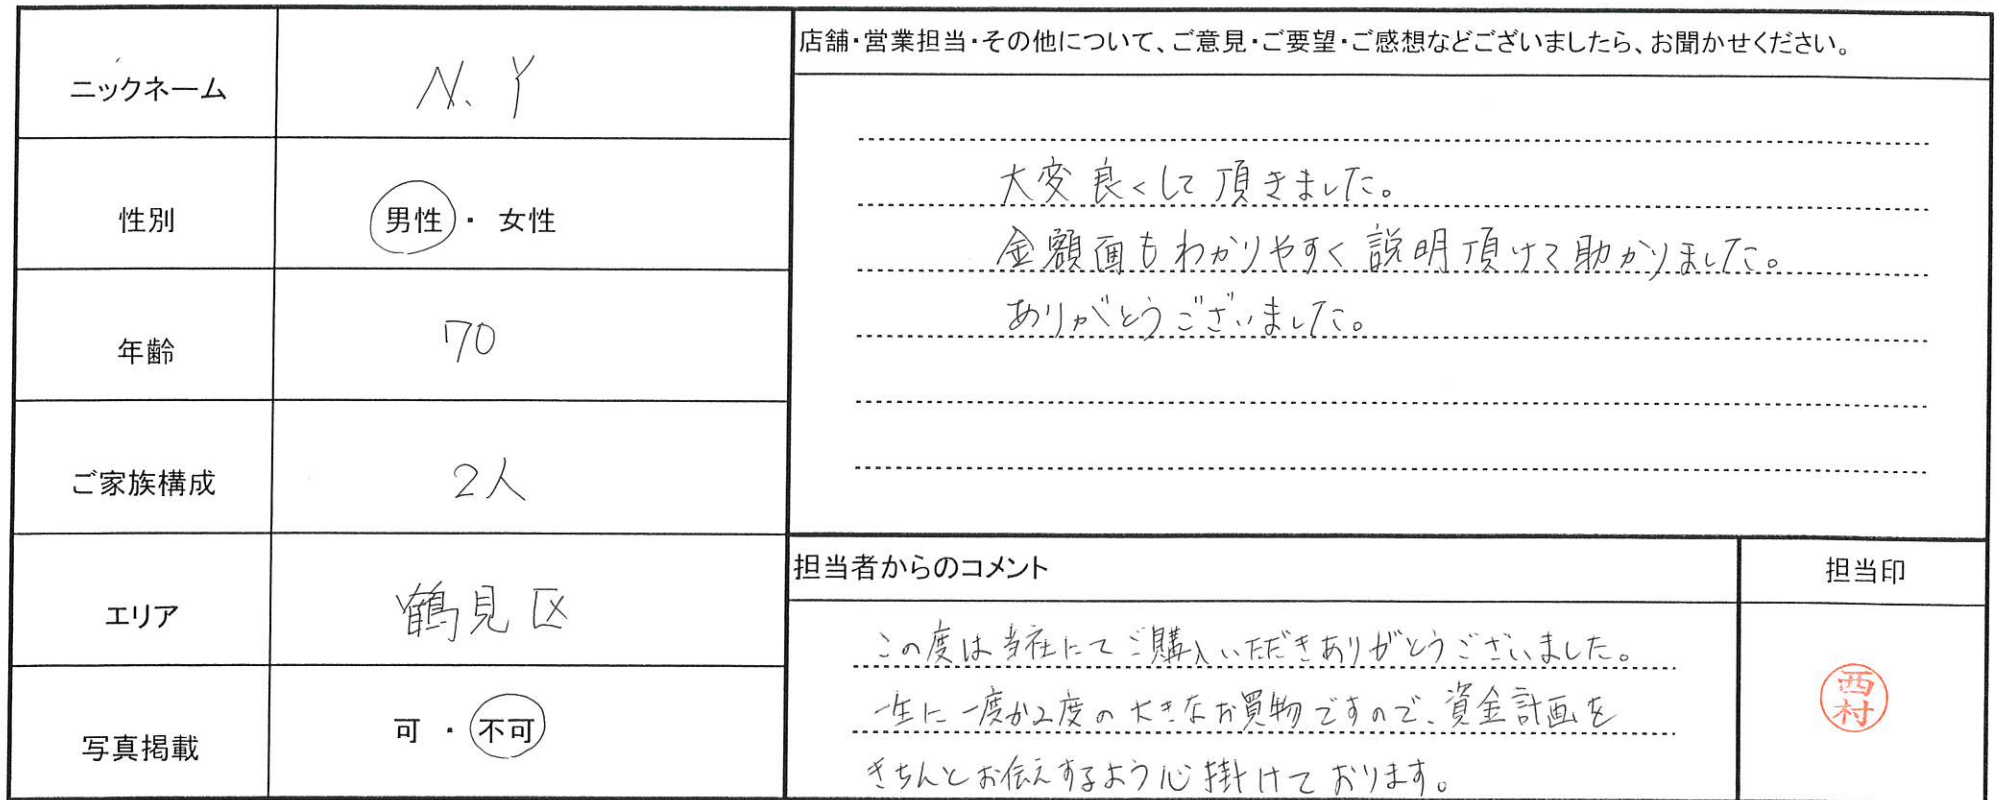 ニックネーム N.Y
性別 男性・女性
年齢 70
ご家族構成 2人
エリア 鶴見区
写真掲載 可・不可
店舗・営業担当・その他について、ご意見・ご要望・ご感想などございましたら、お聞かせください。
大変良くして頂きました。
金額面もわかりやすく説明頂けて助かりました。
ありがとうございました。
担当者からのコメント
この度は当社にてご購入いただきありがとうございました。
一生に一度か2度の大きなお買物ですので、資金計画を
きちんとお伝えするよう心掛けております。
担当印
西村